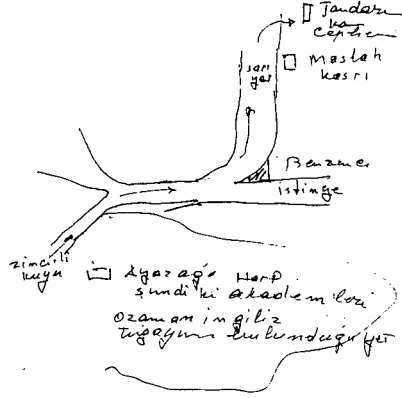 Jandarma
Cephesi
Maslak
Kasrı
sarı
yer
Benzinci
istinye
zincirli
kuyu
Ayazağa Harp
şimdiki akademileri
O zaman ingiliz
Tugayının bulunduğu yer